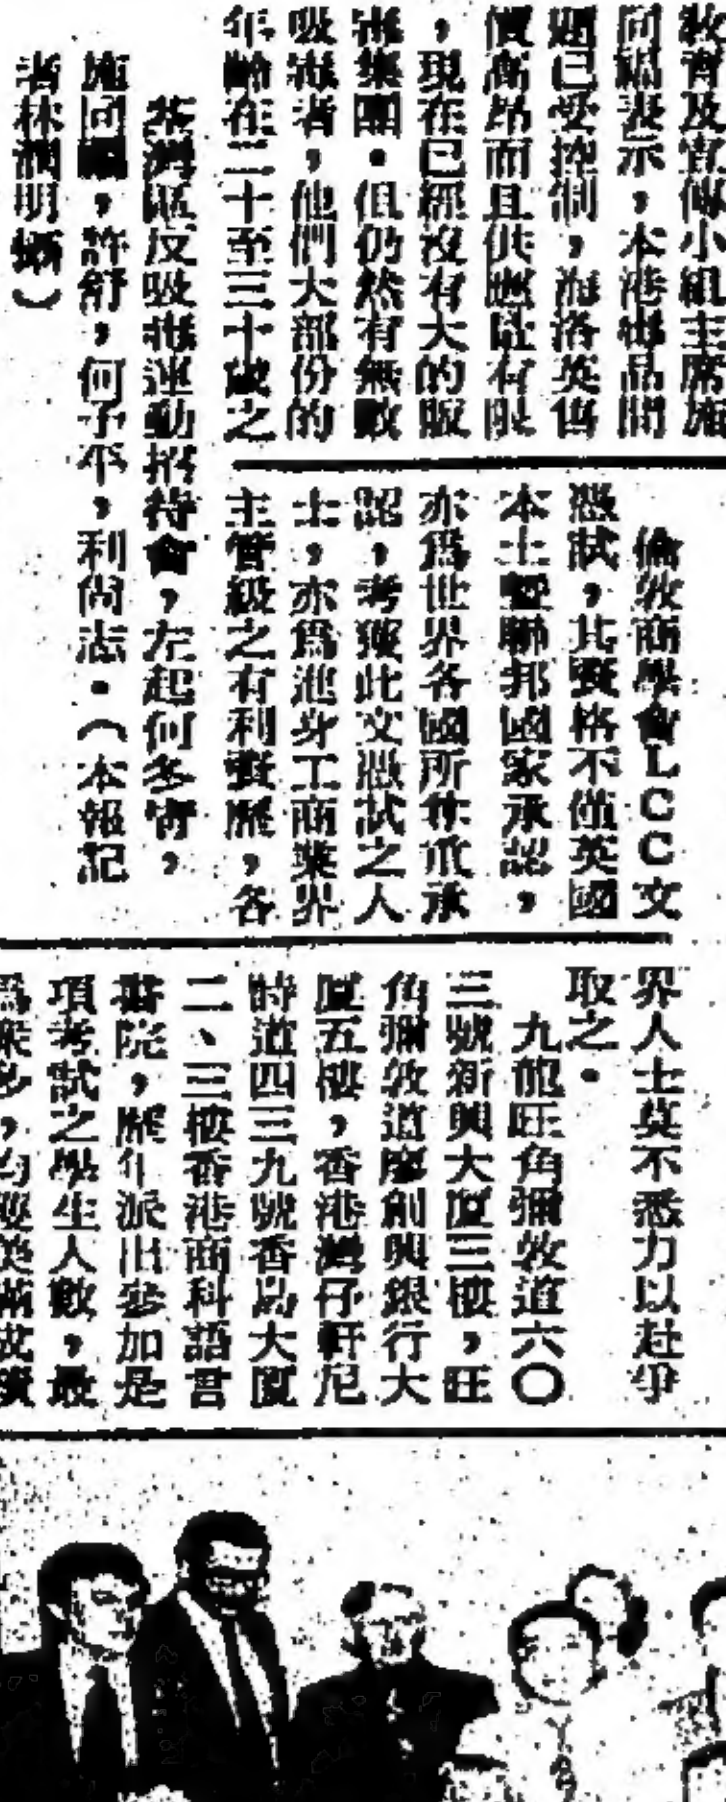 教育及宣傳小組主席施
同福表示，本港毒品問
題已受控制，海洛英售
價高昂而且供應量有限
，現在已經沒有大的販
毒集團。但仍然有無數
吸毒者，他們大部份的
年齡在二十至三十歲之
荃灣區反吸毒運動招待會，左起何冬青，
施同福，許舒，何子平，利尚志。（本報記
者林潤明攝）
倫敦商學會LCC文
憑試，其資格不僅英國
本土暨聯邦國家承認，
亦爲世界各國所
承
認，考獲此文憑試之人
士，亦爲進身工商業界
主管級之有利資歷，各
界人士莫不悉力以赴爭
取之。
九龍旺角彌敦道六〇
三號新興大廈三樓，旺
角彌敦道廖創興銀行大
廈五樓，香港灣仔軒尼
詩道四三九號香島大廈
二、三樓香港商科語言
書院，歷年派出參加是
項考試之學生人數，最
爲衆多，均獲美滿成績